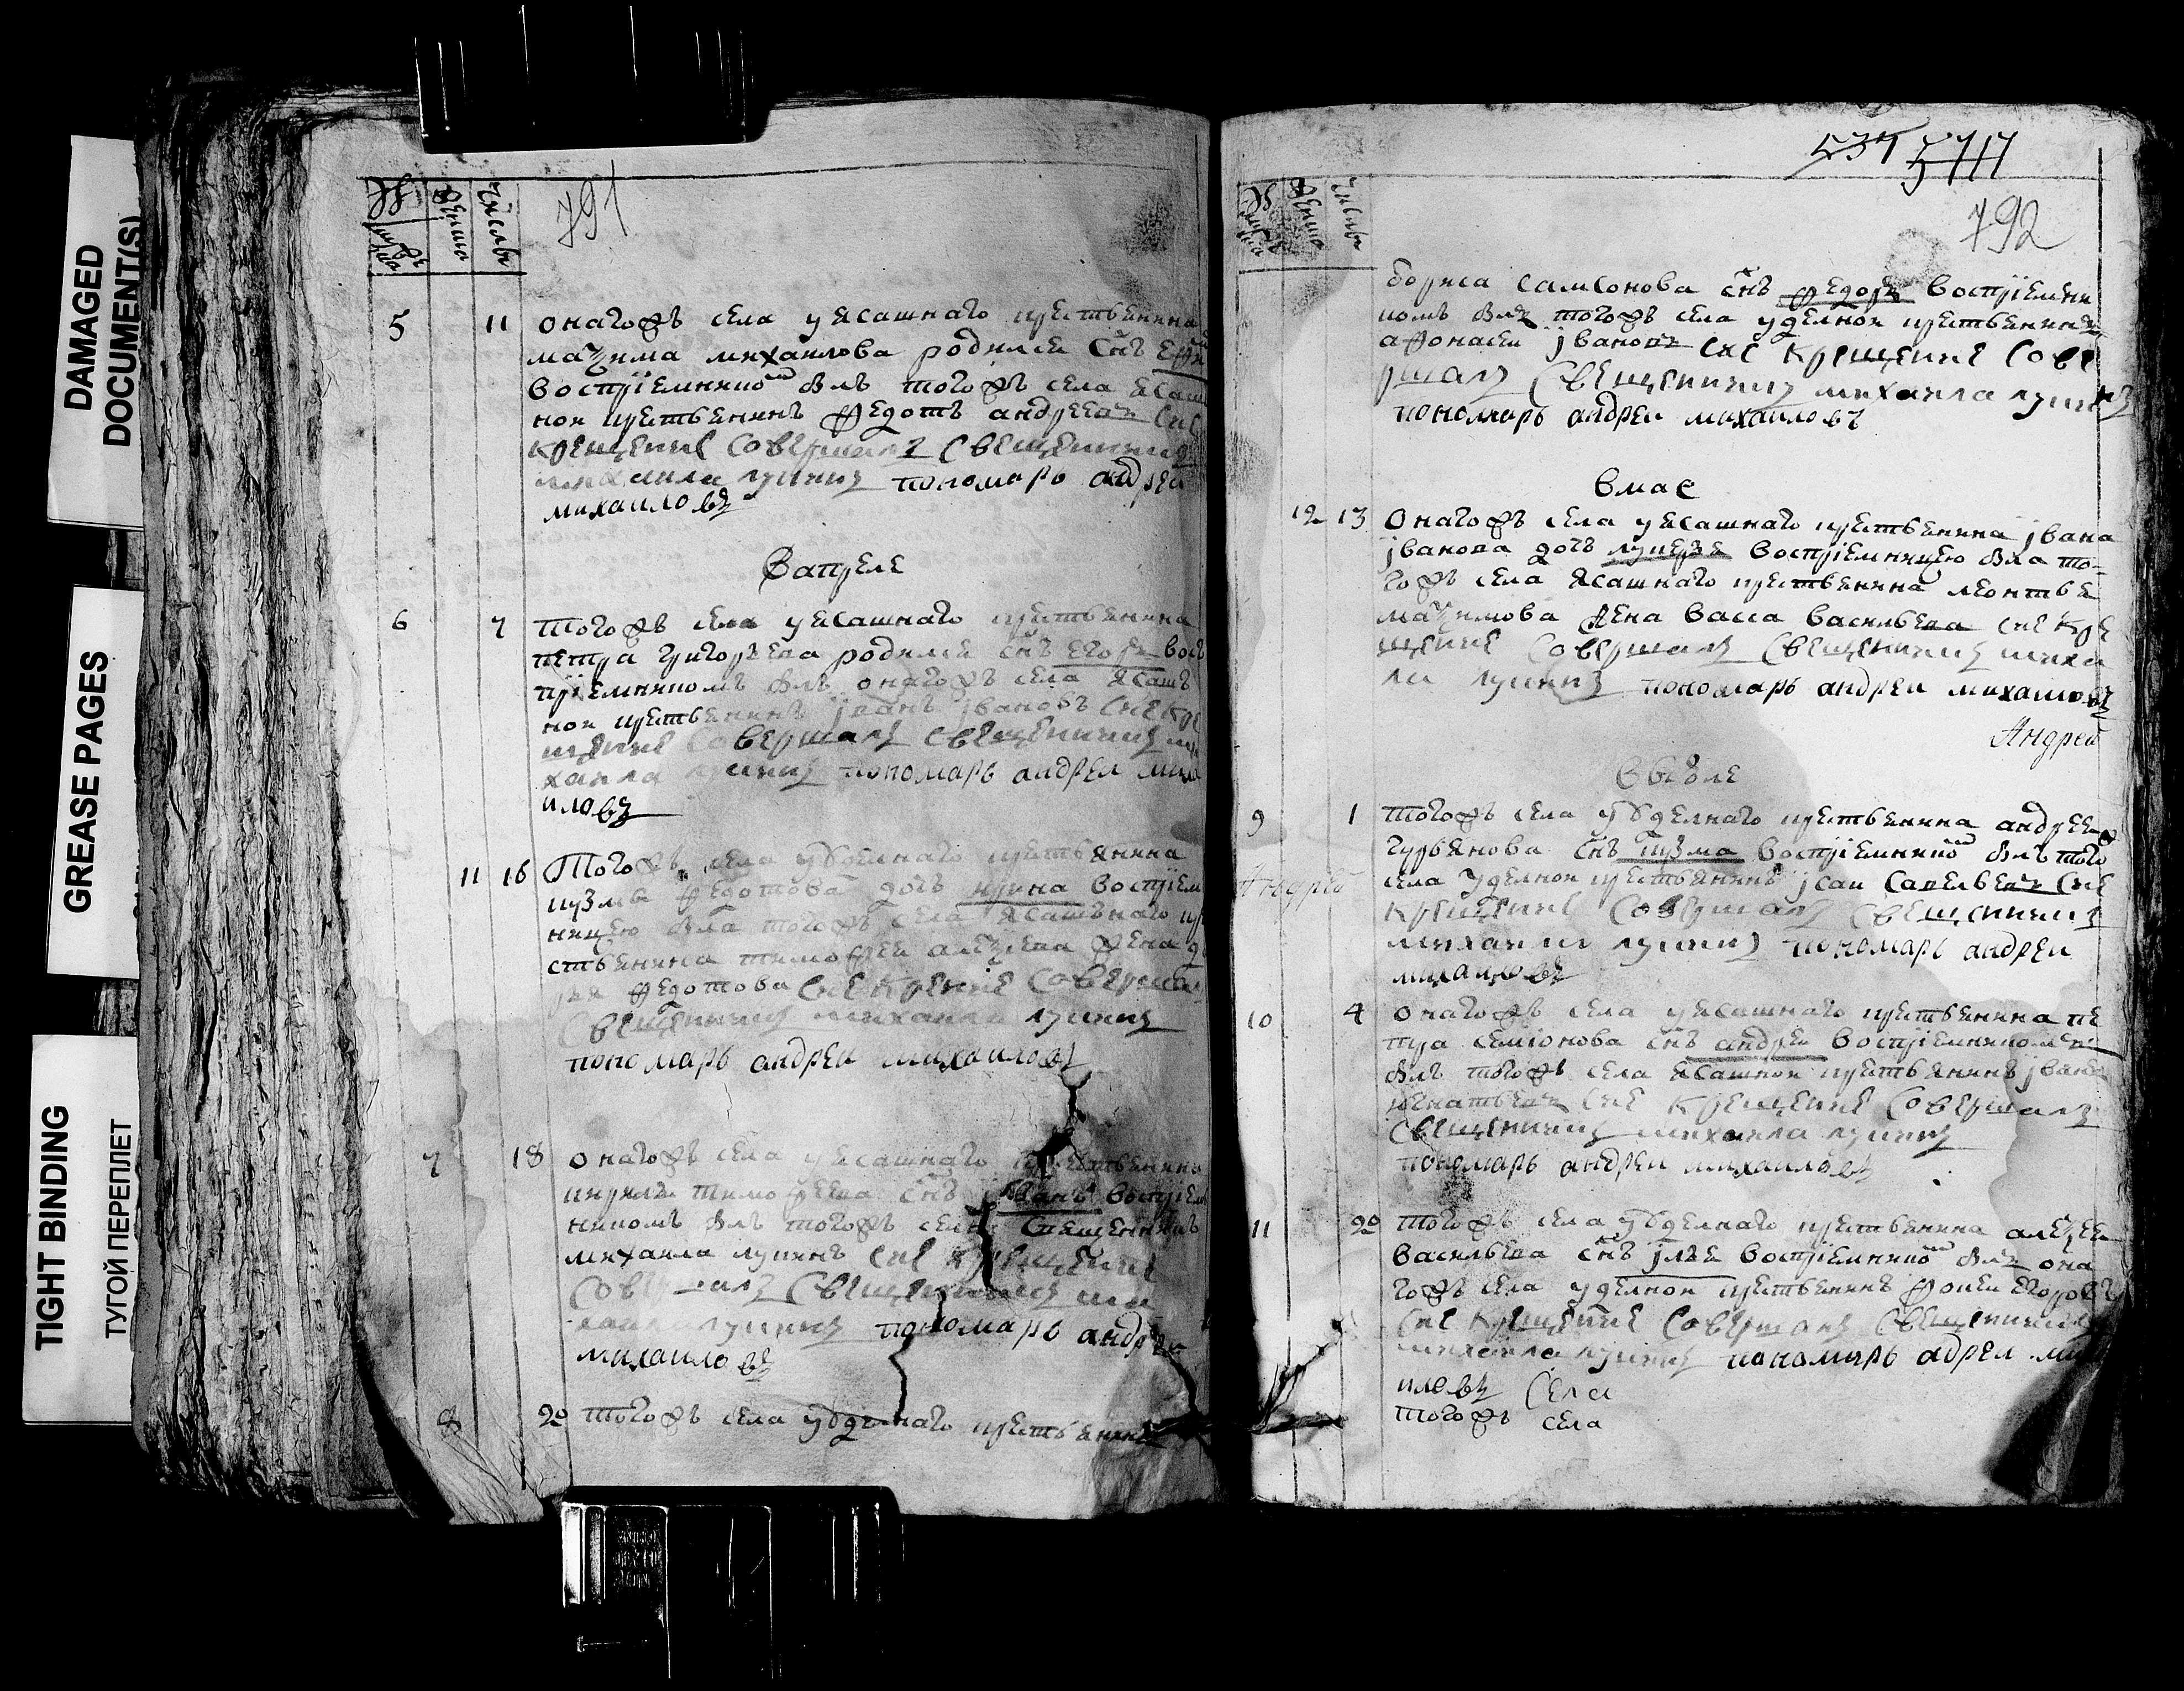 DAMAGED
DOCUMENT(S)
GREASE PAGES
TIGHT BINDING
ТУГОЙ ПЕРЕПЛЕТ
791
Число
5 11 онагожъ села у ясашнаго крестьянина
маѯима михаилова родился снъ
воспрiемникомъ былъ тогожъ села ясаш
ной крестьянинъ ѳедотъ андреевъ сие
крещение совершалъ священникъ
михаила лукинъ пономарь андреи
михаиловъ
Вапреле
6 7 тогожъ села у ясашнаго крестьянина
петра григорьева родился снъ егоръ вос
прiемникомъ былъ онагожъ села ясаш
ной крестьянинъ jванъ jвановъ сие кре
щение совершалъ священникъ ми
хаила лукинъ пономарь андреи миха
иловъ
11 16 Тогожъ села у уделнаго крестьянина
кузмы ѳедотова дочь ирина воспрiем
ницею была тогожъ села ясашънаго кр
стьянина тимофеи алеѯеева жена
ѳедотова сие крещение совершал
священникъ михаила лукинъ
пономарь андреи михаиловъ
7 18 онагожъ села у ясашнаго крестьянина
кирилы тимофеева снъ jванъ воспрiем
никомъ былъ тогожъ села священникъ
михаила лукинъ сие крещение
совершалъ священникъ ми
хаила лукинъ пономарь андреи
михаиловъ
8 20 тогожъ села у уделнаго крестьянина
537 5717
792
Число
бориса самсонова снъ ѳедоръ воспрiемни
комъ былъ тогожъ села уделной крестьянинъ
афонасеи jвановъ сие крещение сове
ршалъ священникъ михаила лукинъ
пономарь андреи михаиловъ
вмае
12 13 Онагожъ села у ясашнаго крестьянина jвана
jванова дочь лукерья воспрiемницею была то-
гожъ села ясашнаго крестьянина леонтья
маѯимова жена васса васильева сие кре
щение совершалъ священникъ миха
ла лукинъ пономарь андреи михаиловъ
Андрей
9 1 тогожъ села у уделнаго крестьянина андрея
гурьянова снъ кузма воспрiемникомъ былъ тогожъ
Андрей села уделной крестьянинъ jсаи савельевъ сие
крещение совершалъ священникъ
михаила лукинъ пономарь андреи
михаиловъ
10 4 онагожъ села у ясашнаго крестьянина пе
тра семiонова снъ андреи воспрiемникомъ
былъ тогожъ села ясашной крестьянинъ jванъ
игнатьевъ сие крещение совершалъ
священникъ михаила лукинъ
пономарь андреи михаиловъ
11 20 тогожъ села у уделнаго крестьянина алеѯея
васильева снъ jлья воспрiемникомъ былъ она
гожъ села уделной крестьянинъ фокеи егоровъ
сие крещение совершалъ священникъ
михаила лукинъ пономарь адреи ми
иловъ села
тогожъ села